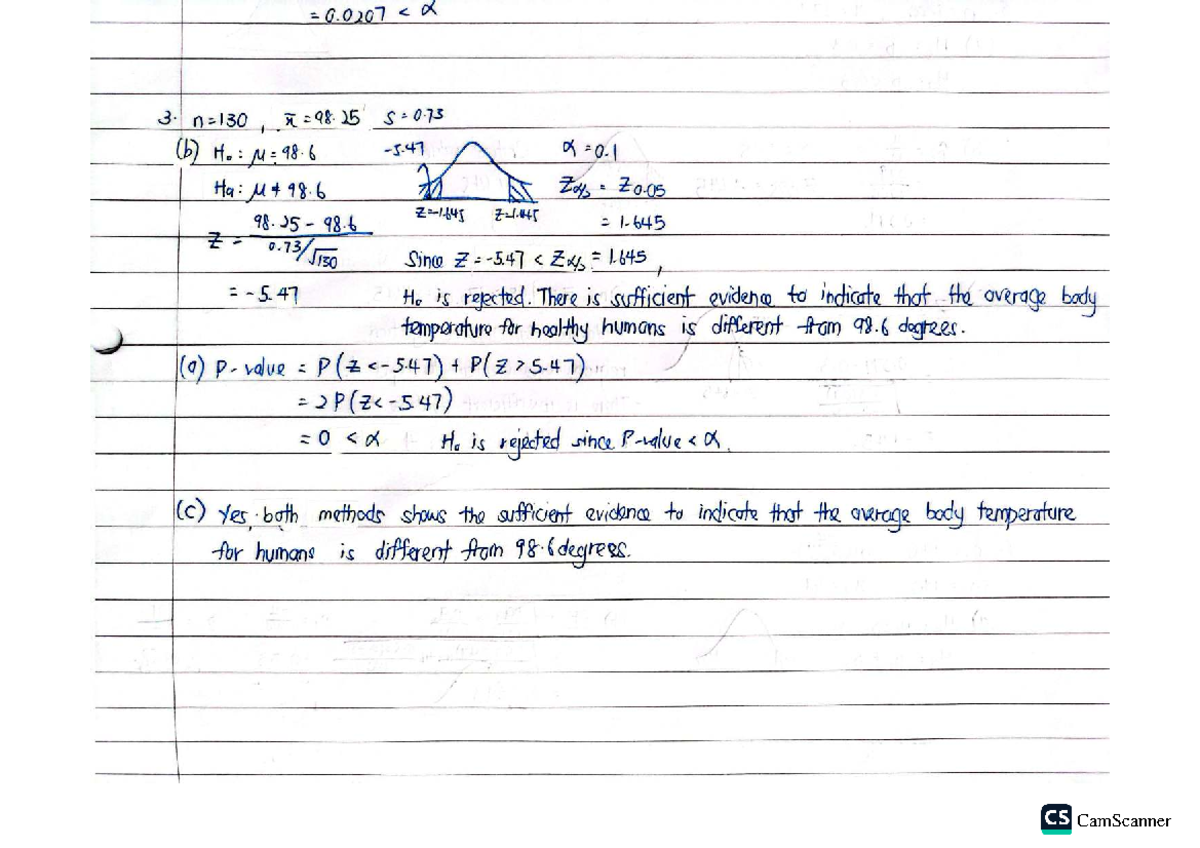 = 0.0207 < α
3. n=130 , x̄ = 98.25 S = 0.73
(b) H₀ : μ = 98.6 -5.47 α = 0.1
Ha : μ ≠ 98.6 Zα/2 = Z0.05
Z=-1.645 Z=1.645 = 1.645
Z = 98.25 - 98.6 / 0.73/√130
Since Z = -5.47 < Zα/2 = 1.645 ,
= -5.47 H₀ is rejected. There is sufficient evidence to indicate that the average body
temperature for healthy humans is different from 98.6 degrees.
(a) P-value = P(Z < -5.47) + P(Z > 5.47)
= 2P(Z < -5.47)
= 0 < α H₀ is rejected since P-value < α.
(c) Yes, both methods shows the sufficient evidence to indicate that the average body temperature
for humans is different from 98.6 degrees.
CS CamScanner